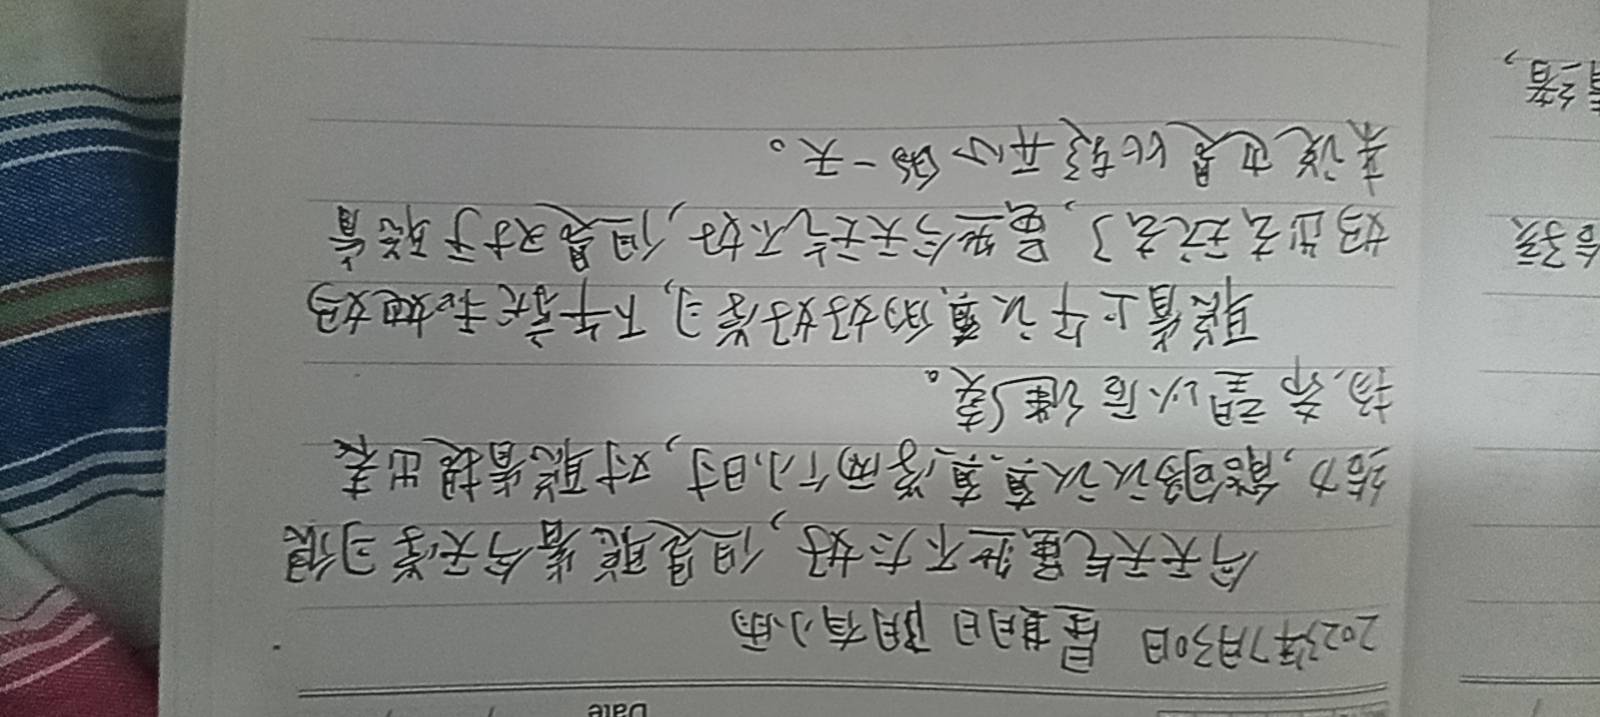 Date
2023年7月30日 星期日 阴有小雨
今天天气虽然不太好，但是聪省今天学习很
给力，能够认认真真学两个小时，对聪省提出表
扬，希望以后继续。
聪省上午认真的好好学习，下午就和她妈
妈出去玩去了，虽然今天天气不好，但是对于聪省
来说也是比较开心的一天。